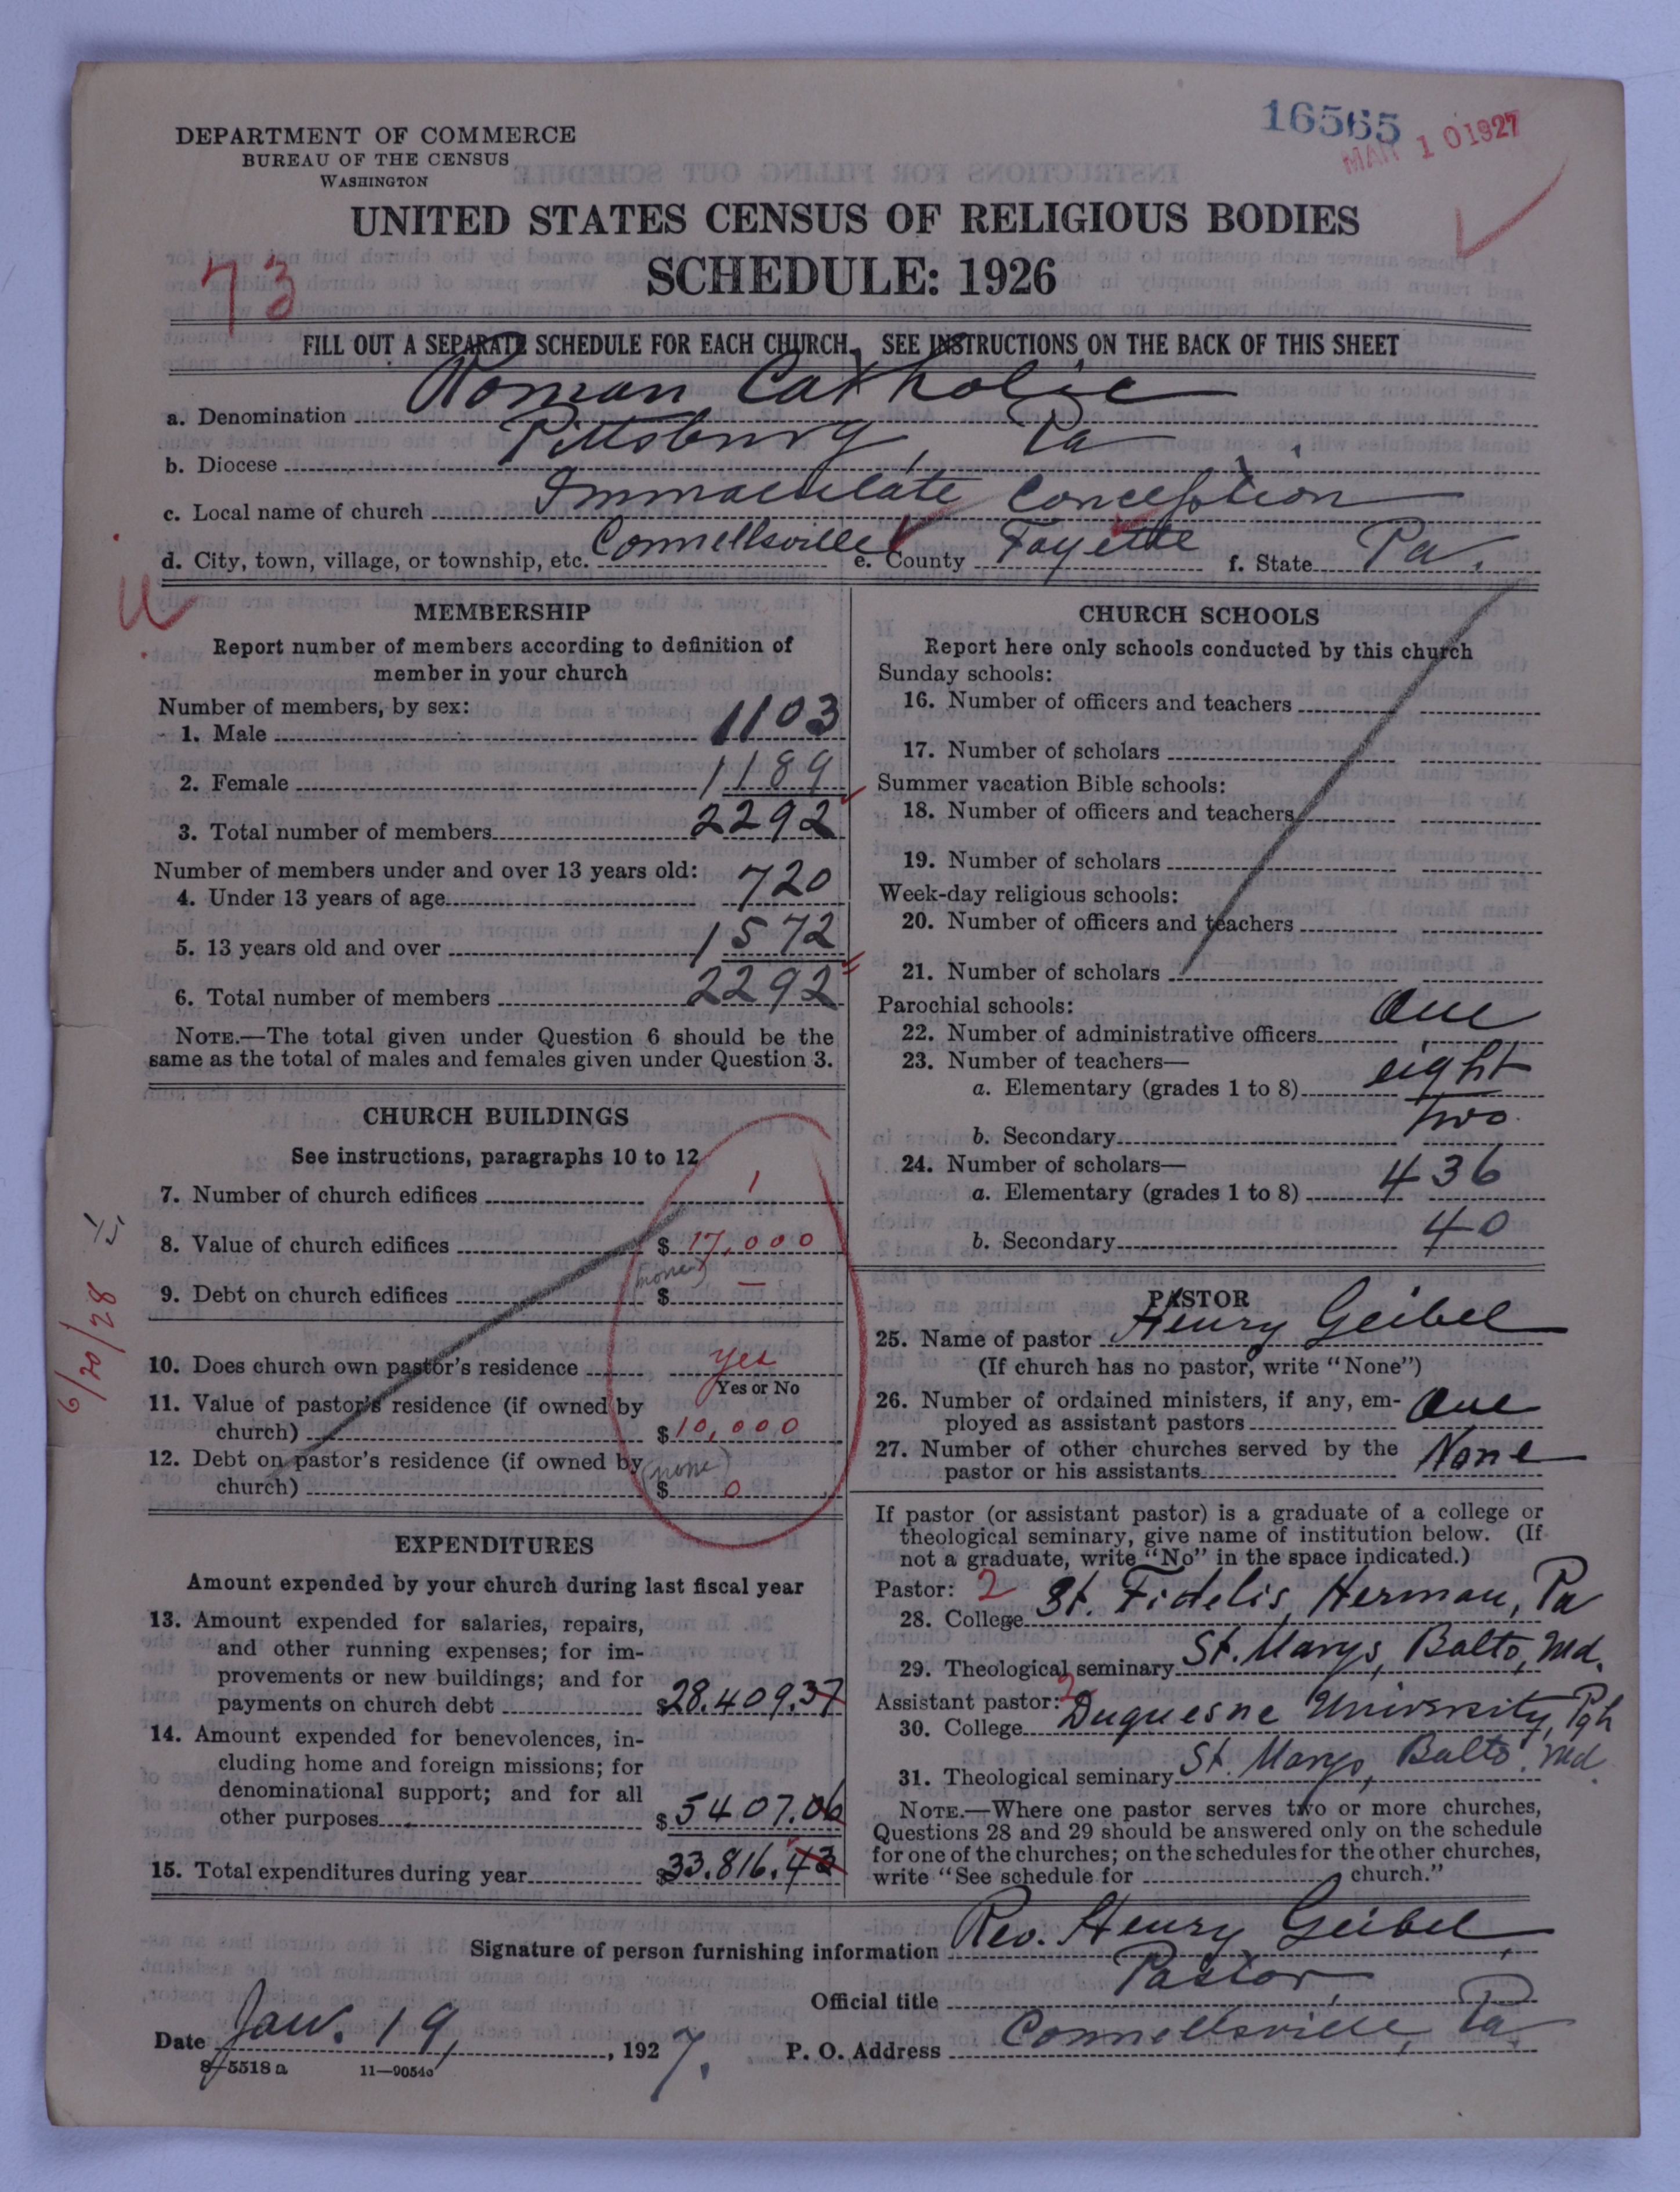 16565
MAR 10 1927
DEPARTMENT OF COMMERCE
BUREAU OF THE CENSUS
WASHINGTON
UNITED STATES CENSUS OF RELIGIOUS BODIES
73
SCHEDULE: 1926
FILL OUT A SEPARATE SCHEDULE FOR EACH CHURCH. SEE INSTRUCTIONS ON THE BACK OF THIS SHEET
a. Denomination Roman Catholic
b. Diocese Pittsburg, Pa
c. Local name of church Immaculate Conception
d. City, town, village, or township, etc. Connellsville e. County Fayette f. State Pa.
MEMBERSHIP
Report number of members according to definition of
member in your church
Number of members, by sex:
1. Male 1103
2. Female 1189
3. Total number of members 2292
Number of members under and over 13 years old:
4. Under 13 years of age 720
5. 13 years old and over 1572
6. Total number of members 2292
NOTE.—The total given under Question 6 should be the
same as the total of males and females given under Question 3.
CHURCH BUILDINGS
See instructions, paragraphs 10 to 12
7. Number of church edifices 1
8. Value of church edifices $ 17,000
(none)
9. Debt on church edifices $ —
10. Does church own pastor's residence yes
Yes or No
11. Value of pastor's residence (if owned by
church) $ 10,000
12. Debt on pastor's residence (if owned by
(none)
church) $ 0
6/20/28
EXPENDITURES
Amount expended by your church during last fiscal year
13. Amount expended for salaries, repairs,
and other running expenses; for im-
provements or new buildings; and for
payments on church debt $28.409.37
14. Amount expended for benevolences, in-
cluding home and foreign missions; for
denominational support; and for all
other purposes $5407.06
15. Total expenditures during year $33.816.43
CHURCH SCHOOLS
Report here only schools conducted by this church
Sunday schools:
16. Number of officers and teachers
17. Number of scholars
Summer vacation Bible schools:
18. Number of officers and teachers
19. Number of scholars
Week-day religious schools:
20. Number of officers and teachers
21. Number of scholars
Parochial schools:
22. Number of administrative officers One
23. Number of teachers—
a. Elementary (grades 1 to 8) eight
b. Secondary two
24. Number of scholars—
a. Elementary (grades 1 to 8) 436
b. Secondary 40
PASTOR
25. Name of pastor Henry Geibel
(If church has no pastor, write "None")
26. Number of ordained ministers, if any, em-
ployed as assistant pastors One
27. Number of other churches served by the
pastor or his assistants None
If pastor (or assistant pastor) is a graduate of a college or
theological seminary, give name of institution below. (If
not a graduate, write "No" in the space indicated.)
Pastor: 2
28. College St. Fidelis, Herman, Pa
29. Theological seminary St. Marys, Balto, Md.
Assistant pastor: 2
30. College Duquesne University, Pgh
31. Theological seminary St. Marys, Balto. Md.
NOTE.—Where one pastor serves two or more churches,
Questions 28 and 29 should be answered only on the schedule
for one of the churches; on the schedules for the other churches,
write "See schedule for church."
Signature of person furnishing information Rev. Henry Geibel
Official title Pastor
Date Jan. 19, 1927. P. O. Address Connellsville, Pa
8-5518a 11-9054